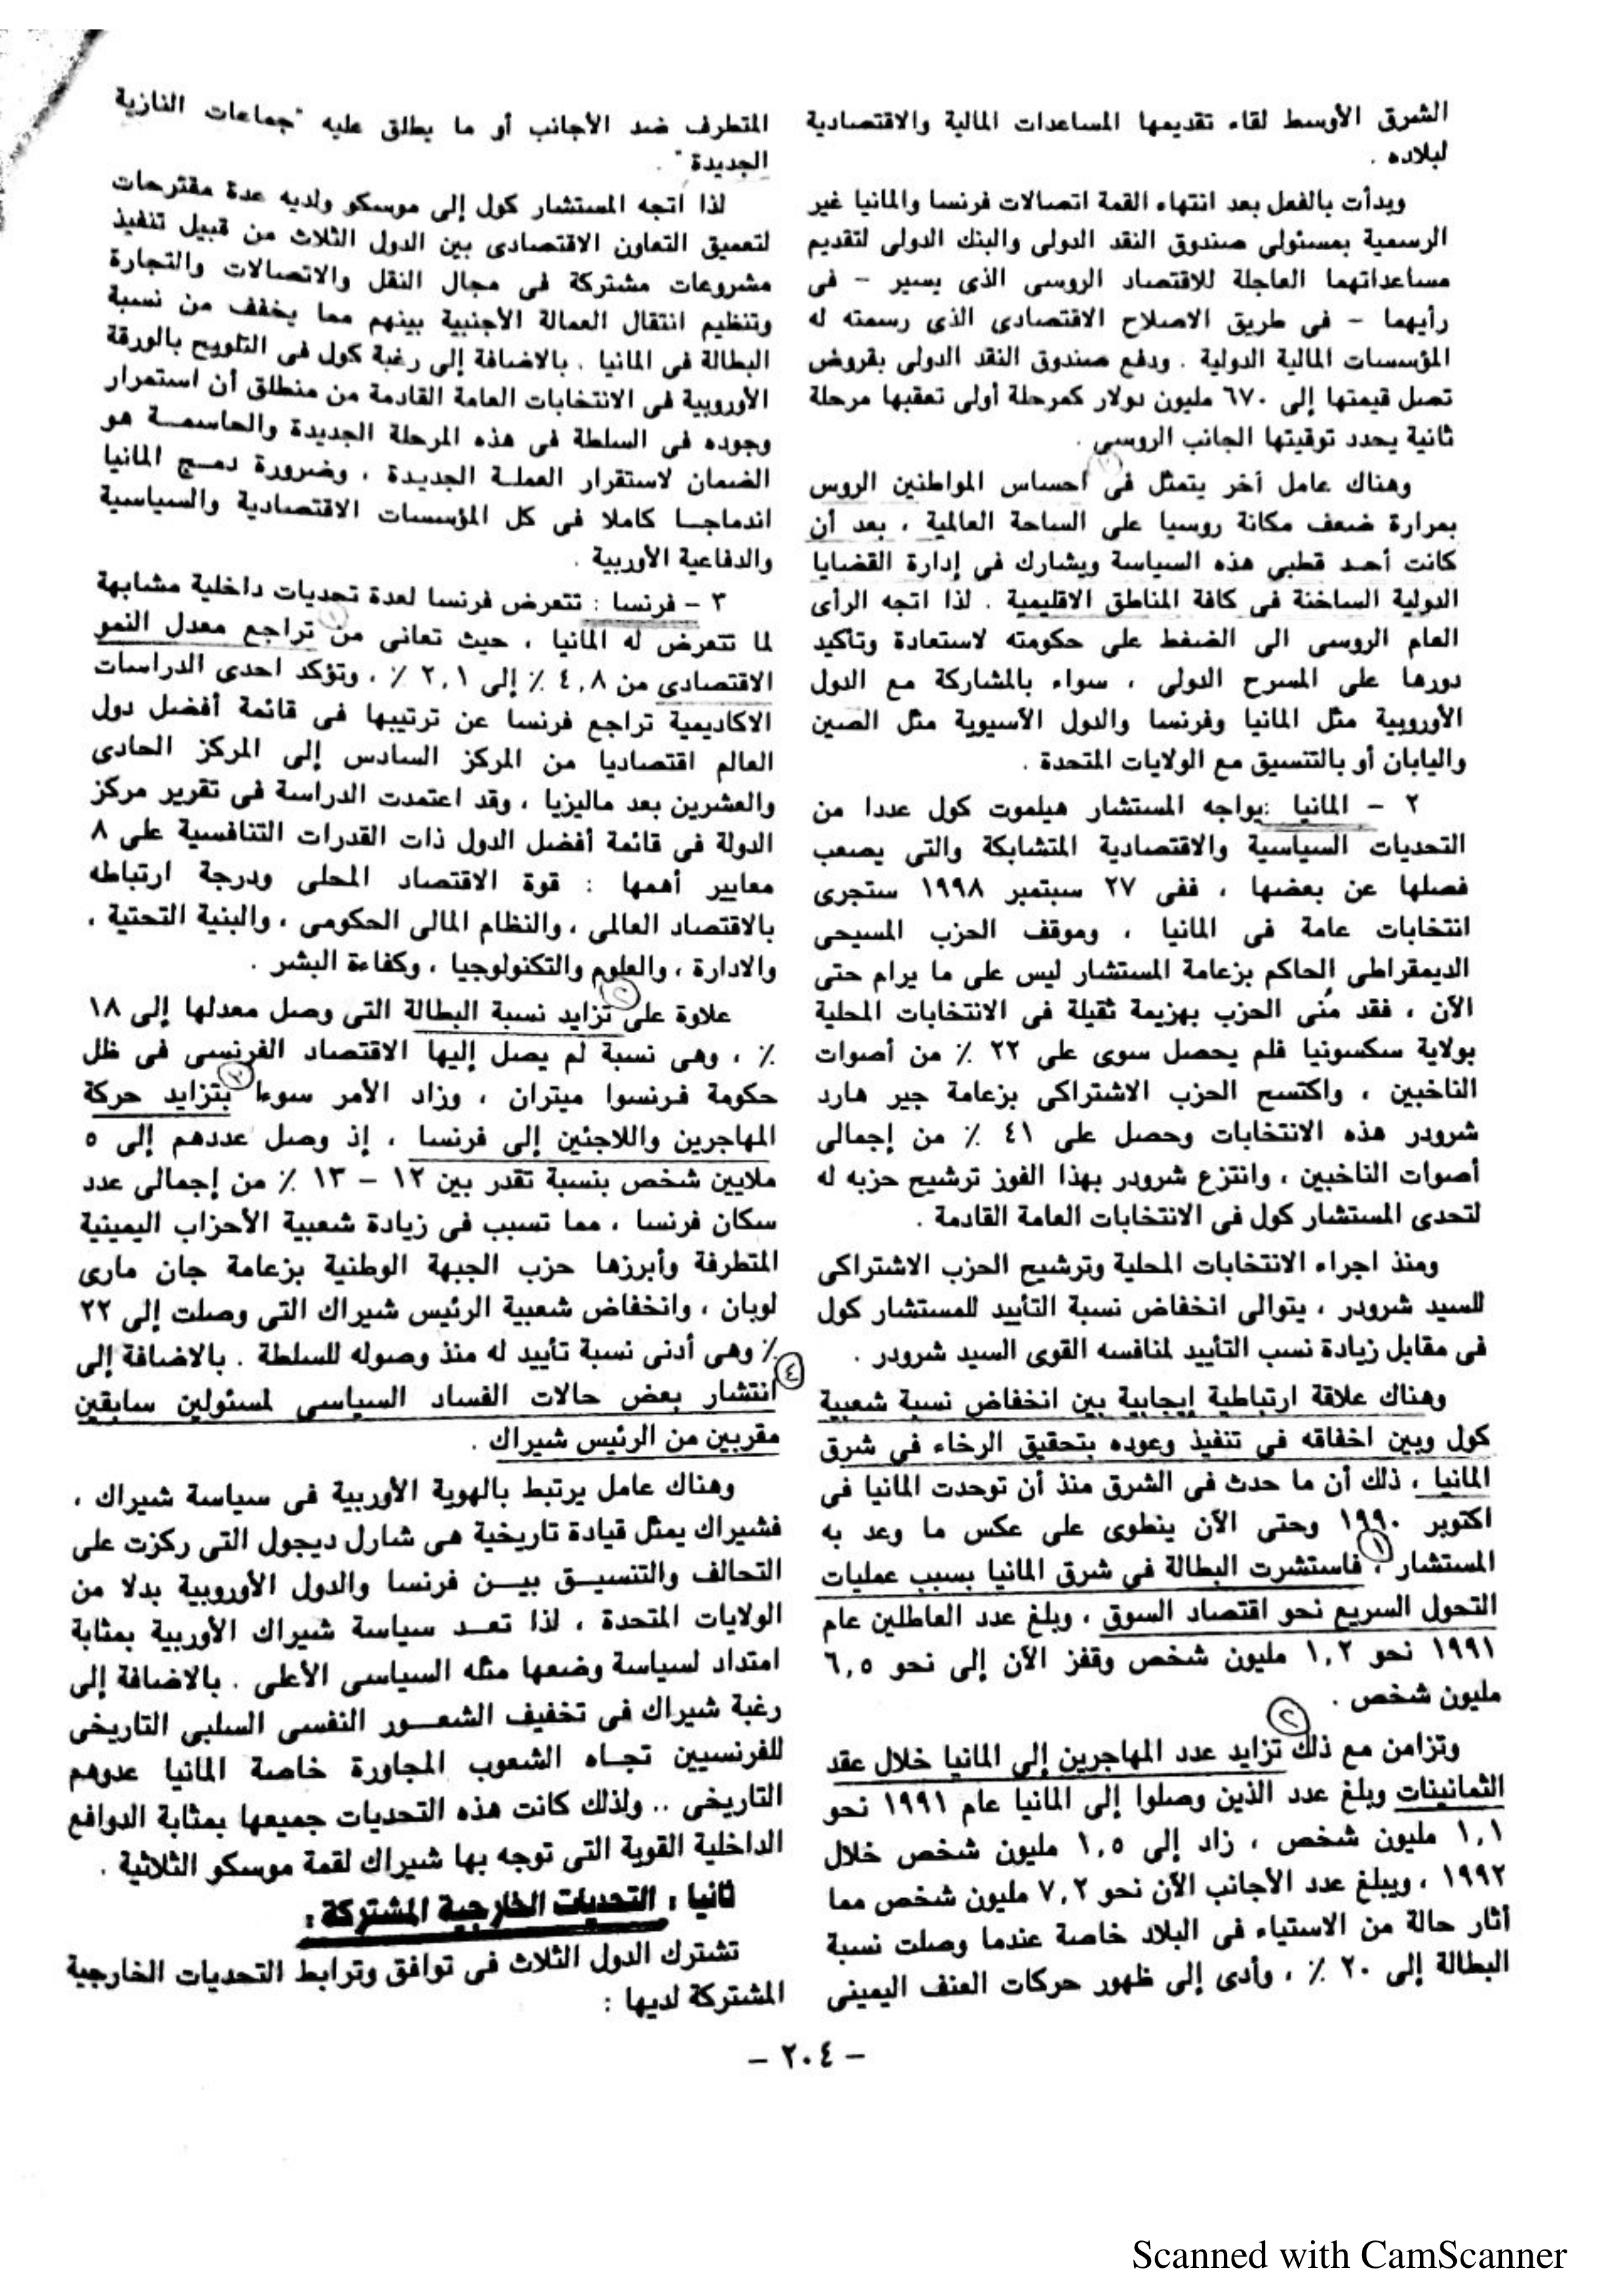 الشرق الأوسط لقاء تقديمها المساعدات المالية والاقتصادية
لبلاده .
وبدأت بالفعل بعد انتهاء القمة اتصالات فرنسا والمانيا غير
الرسمية بمسئولى صندوق النقد الدولى والبنك الدولى لتقديم
مساعداتهما العاجلة للاقتصاد الروسى الذى يسير – فى
رأيهما – فى طريق الاصلاح الاقتصادى الذى رسمته له
المؤسسات المالية الدولية . ودفع صندوق النقد الدولى بقروض
تصل قيمتها إلى ٦٧٠ مليون دولار كمرحلة أولى تعقبها مرحلة
ثانية يحدد توقيتها الجانب الروسى .
وهناك عامل آخر يتمثل فى احساس المواطنين الروس
بمرارة ضعف مكانة روسيا على الساحة العالمية ، بعد أن
كانت أحد قطبي هذه السياسة ويشارك فى إدارة القضايا
الدولية الساخنة فى كافة المناطق الاقليمية . لذا اتجه الرأى
العام الروسى الى الضغط على حكومته لاستعادة وتأكيد
دورها على المسرح الدولى ، سواء بالمشاركة مع الدول
الأوروبية مثل المانيا وفرنسا والدول الآسيوية مثل الصين
واليابان أو بالتنسيق مع الولايات المتحدة .
٢ – المانيا :يواجه المستشار هيلموت كول عددا من
التحديات السياسية والاقتصادية المتشابكة والتى يصعب
فصلها عن بعضها ، ففى ٢٧ سبتمبر ١٩٩٨ ستجرى
انتخابات عامة فى المانيا ، وموقف الحزب المسيحى
الديمقراطى الحاكم بزعامة المستشار ليس على ما يرام حتى
الآن ، فقد مُنى الحزب بهزيمة ثقيلة فى الانتخابات المحلية
بولاية سكسونيا فلم يحصل سوى على ٢٢ ٪ من أصوات
الناخبين ، واكتسح الحزب الاشتراكى بزعامة جير هارد
شرودر هذه الانتخابات وحصل على ٤١ ٪ من إجمالى
أصوات الناخبين ، وانتزع شرودر بهذا الفوز ترشيح حزبه له
لتحدى المستشار كول فى الانتخابات العامة القادمة .
ومنذ اجراء الانتخابات المحلية وترشيح الحزب الاشتراكى
للسيد شرودر ، يتوالى انخفاض نسبة التأييد للمستشار كول
فى مقابل زيادة نسب التأييد لمنافسه القوى السيد شرودر .
وهناك علاقة ارتباطية إيجابية بين انخفاض نسبة شعبية
كول وبين اخفاقه فى تنفيذ وعوده بتحقيق الرخاء فى شرق
المانيا ، ذلك أن ما حدث فى الشرق منذ أن توحدت المانيا فى
اكتوبر ١٩٩٠ وحتى الآن ينطوى على عكس ما وعد به
المستشار ، ١ فاستشرت البطالة فى شرق المانيا بسبب عمليات
التحول السريع نحو اقتصاد السوق ، وبلغ عدد العاطلين عام
١٩٩١ نحو ١,٢ مليون شخص وقفز الآن إلى نحو ٦,٥
مليون شخص .
وتزامن مع ذلك ٢ تزايد عدد المهاجرين إلى المانيا خلال عقد
الثمانينات وبلغ عدد الذين وصلوا إلى المانيا عام ١٩٩١ نحو
١,١ مليون شخص ، زاد إلى ١,٥ مليون شخص خلال
١٩٩٢ ، ويبلغ عدد الأجانب الآن نحو ٧,٢ مليون شخص مما
أثار حالة من الاستياء فى البلاد خاصة عندما وصلت نسبة
البطالة إلى ٢٠ ٪ ، وأدى إلى ظهور حركات العنف اليمينى
المتطرف ضد الأجانب أو ما يطلق عليه "جماعات النازية
الجديدة" .
لذا اتجه المستشار كول إلى موسكو ولديه عدة مقترحات
لتعميق التعاون الاقتصادى بين الدول الثلاث من قبيل تنفيذ
مشروعات مشتركة فى مجال النقل والاتصالات والتجارة
وتنظيم انتقال العمالة الأجنبية بينهم مما يخفف من نسبة
البطالة فى المانيا . بالاضافة إلى رغبة كول فى التلويح بالورقة
الأوروبية فى الانتخابات العامة القادمة من منطلق أن استمرار
وجوده فى السلطة فى هذه المرحلة الجديدة والحاسمة هو
الضمان لاستقرار العملة الجديدة ، وضرورة دمج المانيا
اندماجا كاملا فى كل المؤسسات الاقتصادية والسياسية
والدفاعية الأوربية .
٣ – فرنسا : تتعرض فرنسا لعدة تحديات داخلية مشابهة
لما تتعرض له المانيا ، حيث تعانى من ١ تراجع معدل النمو
الاقتصادى من ٤,٨ ٪ إلى ٢,١ ٪ ، وتؤكد احدى الدراسات
الاكاديمية تراجع فرنسا عن ترتيبها فى قائمة أفضل دول
العالم اقتصاديا من المركز السادس إلى المركز الحادى
والعشرين بعد ماليزيا ، وقد اعتمدت الدراسة فى تقرير مركز
الدولة فى قائمة أفضل الدول ذات القدرات التنافسية على ٨
معايير أهمها : قوة الاقتصاد المحلى ودرجة ارتباطه
بالاقتصاد العالمى ، والنظام المالى الحكومى ، والبنية التحتية ،
والادارة ، والعلوم والتكنولوجيا ، وكفاءة البشر .
علاوة على ٢ تزايد نسبة البطالة التى وصل معدلها إلى ١٨
٪ ، وهى نسبة لم يصل إليها الاقتصاد الفرنسى فى ظل
حكومة فرنسوا ميتران ، وزاد الأمر سوءا ٣ بتزايد حركة
المهاجرين واللاجئين إلى فرنسا ، إذ وصل عددهم إلى ٥
ملايين شخص بنسبة تقدر بين ١٢ – ١٣ ٪ من إجمالى عدد
سكان فرنسا ، مما تسبب فى زيادة شعبية الأحزاب اليمينية
المتطرفة وأبرزها حزب الجبهة الوطنية بزعامة جان مارى
لوبان ، وانخفاض شعبية الرئيس شيراك التى وصلت إلى ٢٢
٪ وهى أدنى نسبة تأييد له منذ وصوله للسلطة . بالاضافة إلى
٤ انتشار بعض حالات الفساد السياسى لمسئولين سابقين
مقربين من الرئيس شيراك .
وهناك عامل يرتبط بالهوية الأوربية فى سياسة شيراك ،
فشيراك يمثل قيادة تاريخية هى شارل ديجول التى ركزت على
التحالف والتنسيق بين فرنسا والدول الأوروبية بدلا من
الولايات المتحدة ، لذا تعد سياسة شيراك الأوربية بمثابة
امتداد لسياسة وضعها مثله السياسى الأعلى . بالاضافة إلى
رغبة شيراك فى تخفيف الشعور النفسى السلبى التاريخى
للفرنسيين تجاه الشعوب المجاورة خاصة المانيا عدوهم
التاريخى .. ولذلك كانت هذه التحديات جميعها بمثابة الدوافع
الداخلية القوية التى توجه بها شيراك لقمة موسكو الثلاثية .
ثانيا : التحديات الخارجية المشتركة :
تشترك الدول الثلاث فى توافق وترابط التحديات الخارجية
المشتركة لديها :
– ٢٠٤ –
Scanned with CamScanner